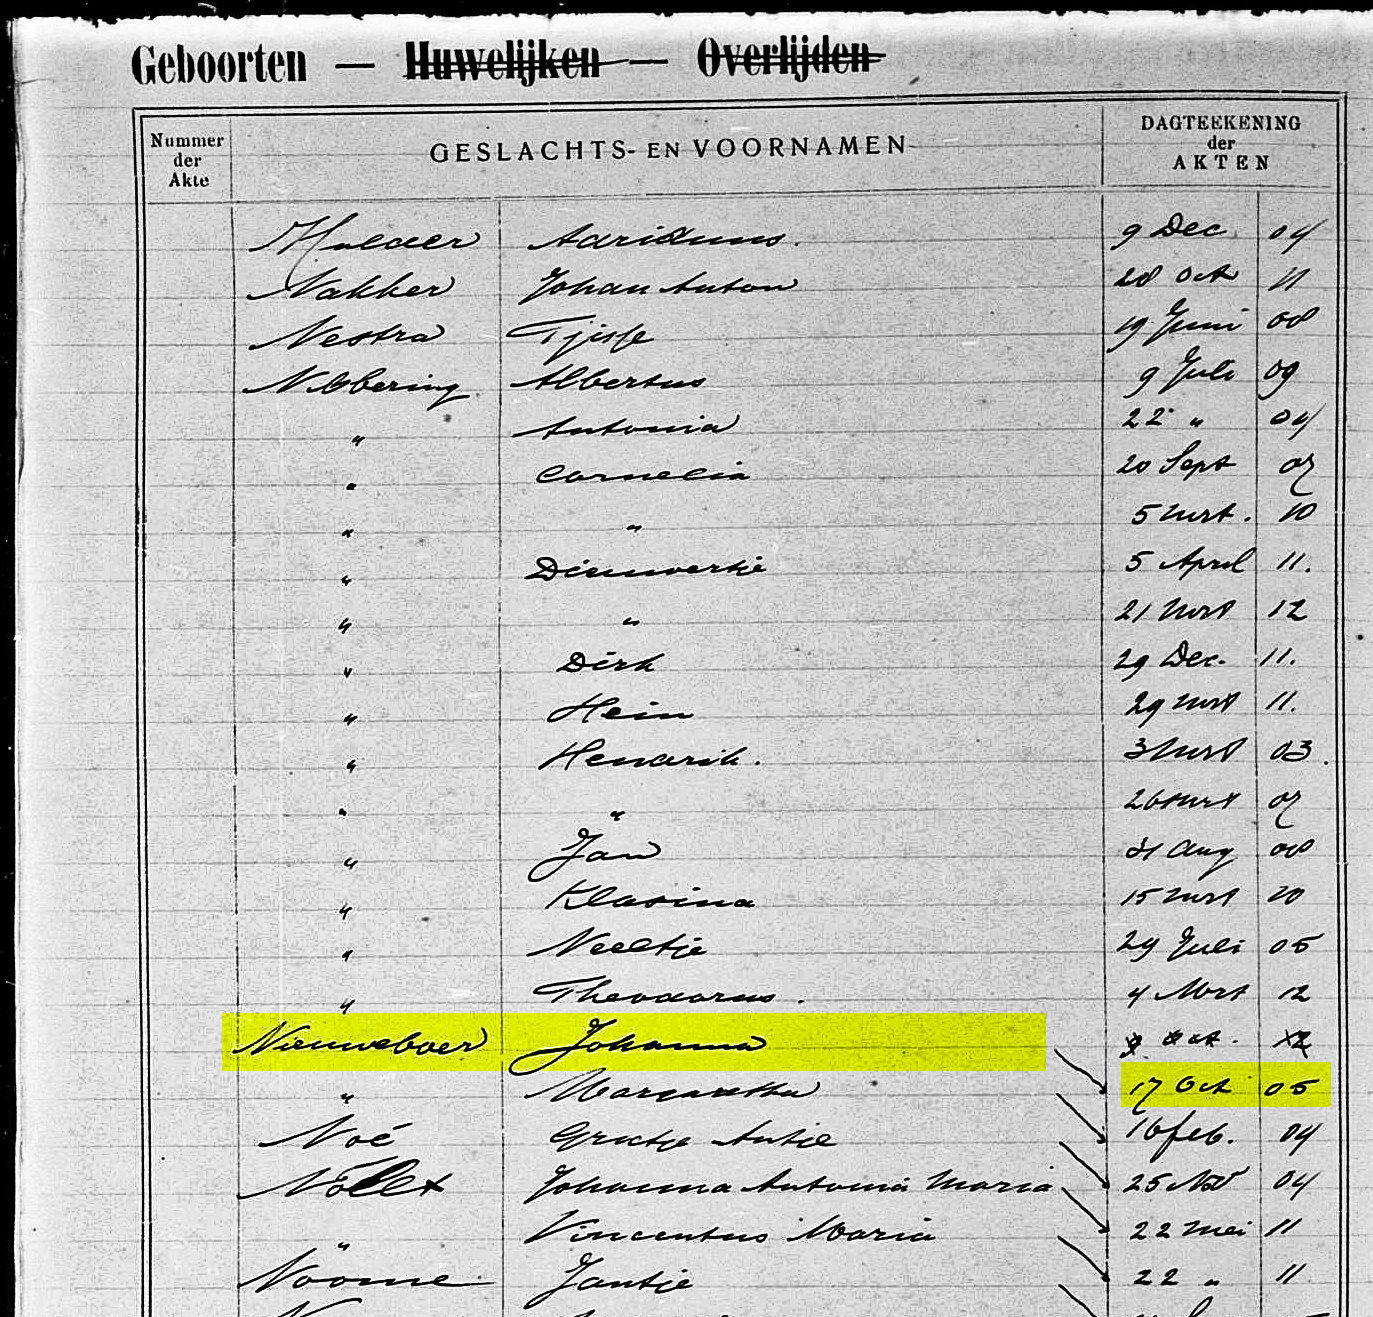 Geboorten — Huwelijken — Overlijden
Nummer der Akte GESLACHTS- EN VOORNAMEN DAGTEEKENING der AKTEN
Mulder Adrianus. 9 Dec. 04
Nakker Johan Anton 28 Oct 11
Nestra Tjisse 19 Juni 08
Nibbering Albertus 9 Juli 09
" Antonia 22 " 04
" Cornelia 20 Sept 07
" " 5 Mrt. 10
" Dieuwertje 5 April 11.
" " 21 Mrt 12
" Dirk 29 Dec. 11.
" Hein 29 Mrt 11.
" Hendrik. 3 Mrt 03.
" " 26 Mrt 07
" Jan 31 Aug 08
" Klasina 15 Mrt 10
" Neeltje 29 Juli 05
" Theodorus. 4 Mrt 12
Nieuweboer Johanna
" Margaretha 17 Oct 05
Noé Grietje Antje 16 feb. 04
Nollet Johanna Antonia Maria 25 Nov 04
" Vincentus Maria 22 Mei 11
Nöome Jantje 22 " 11